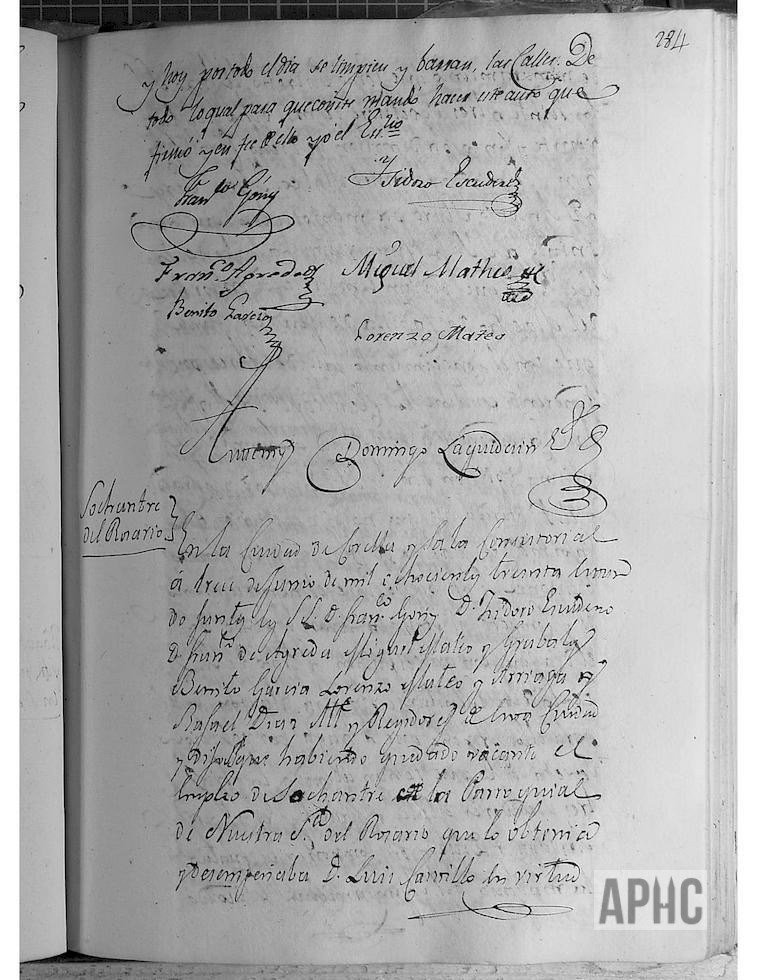 284
y hoy por todo el dia se limpien y barran, las Calles. De
todo lo qual para que conste mando hacer este auto que
firmó y en fee de ello yo el Es.no
Fran.co Goñy
Ysidoro Escudero
Fran.co Agreda
Miguel Matheo
Benito Garcia
Lorenzo Mateo
Antemy Domingo Laquidain
Sochantre
del Rosario
En la Ciudad de Corella y Sala Consistorial
á trece de Junio de mil ochocientos treinta
do Juntos los SS. D. Fran.co Goñy D. Isidoro Escudero
D. Fran.co de Agreda Miguel Mateo y Grabalos
Benito Garcia Lorenzo Mateo y Arriaga y
Rafael Diaz Alle y Regidores de esta Ciudad
y dijeron que habiendo quedado vacante el
empleo de Sochantre en la Parroquial
de Nuestra S.ra del Rosario que lo obtenia
y desempeñaba D. Luis Carrillo en virtud
APHC